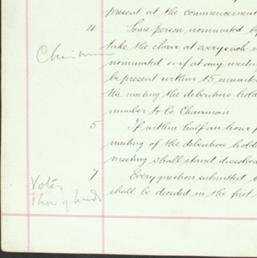 present at the commencement
4 Some person nominated by
Chairman
take the chair at every such
nominated or if at any meeting
be present within 15 minutes
the meeting the debenture hold
number to be Chairman
5 If within half an hour f
meeting of the debenture hold
meeting shall stand dissolved
7 Every question submitted
Votes
shall be decided in the first
Show of hands